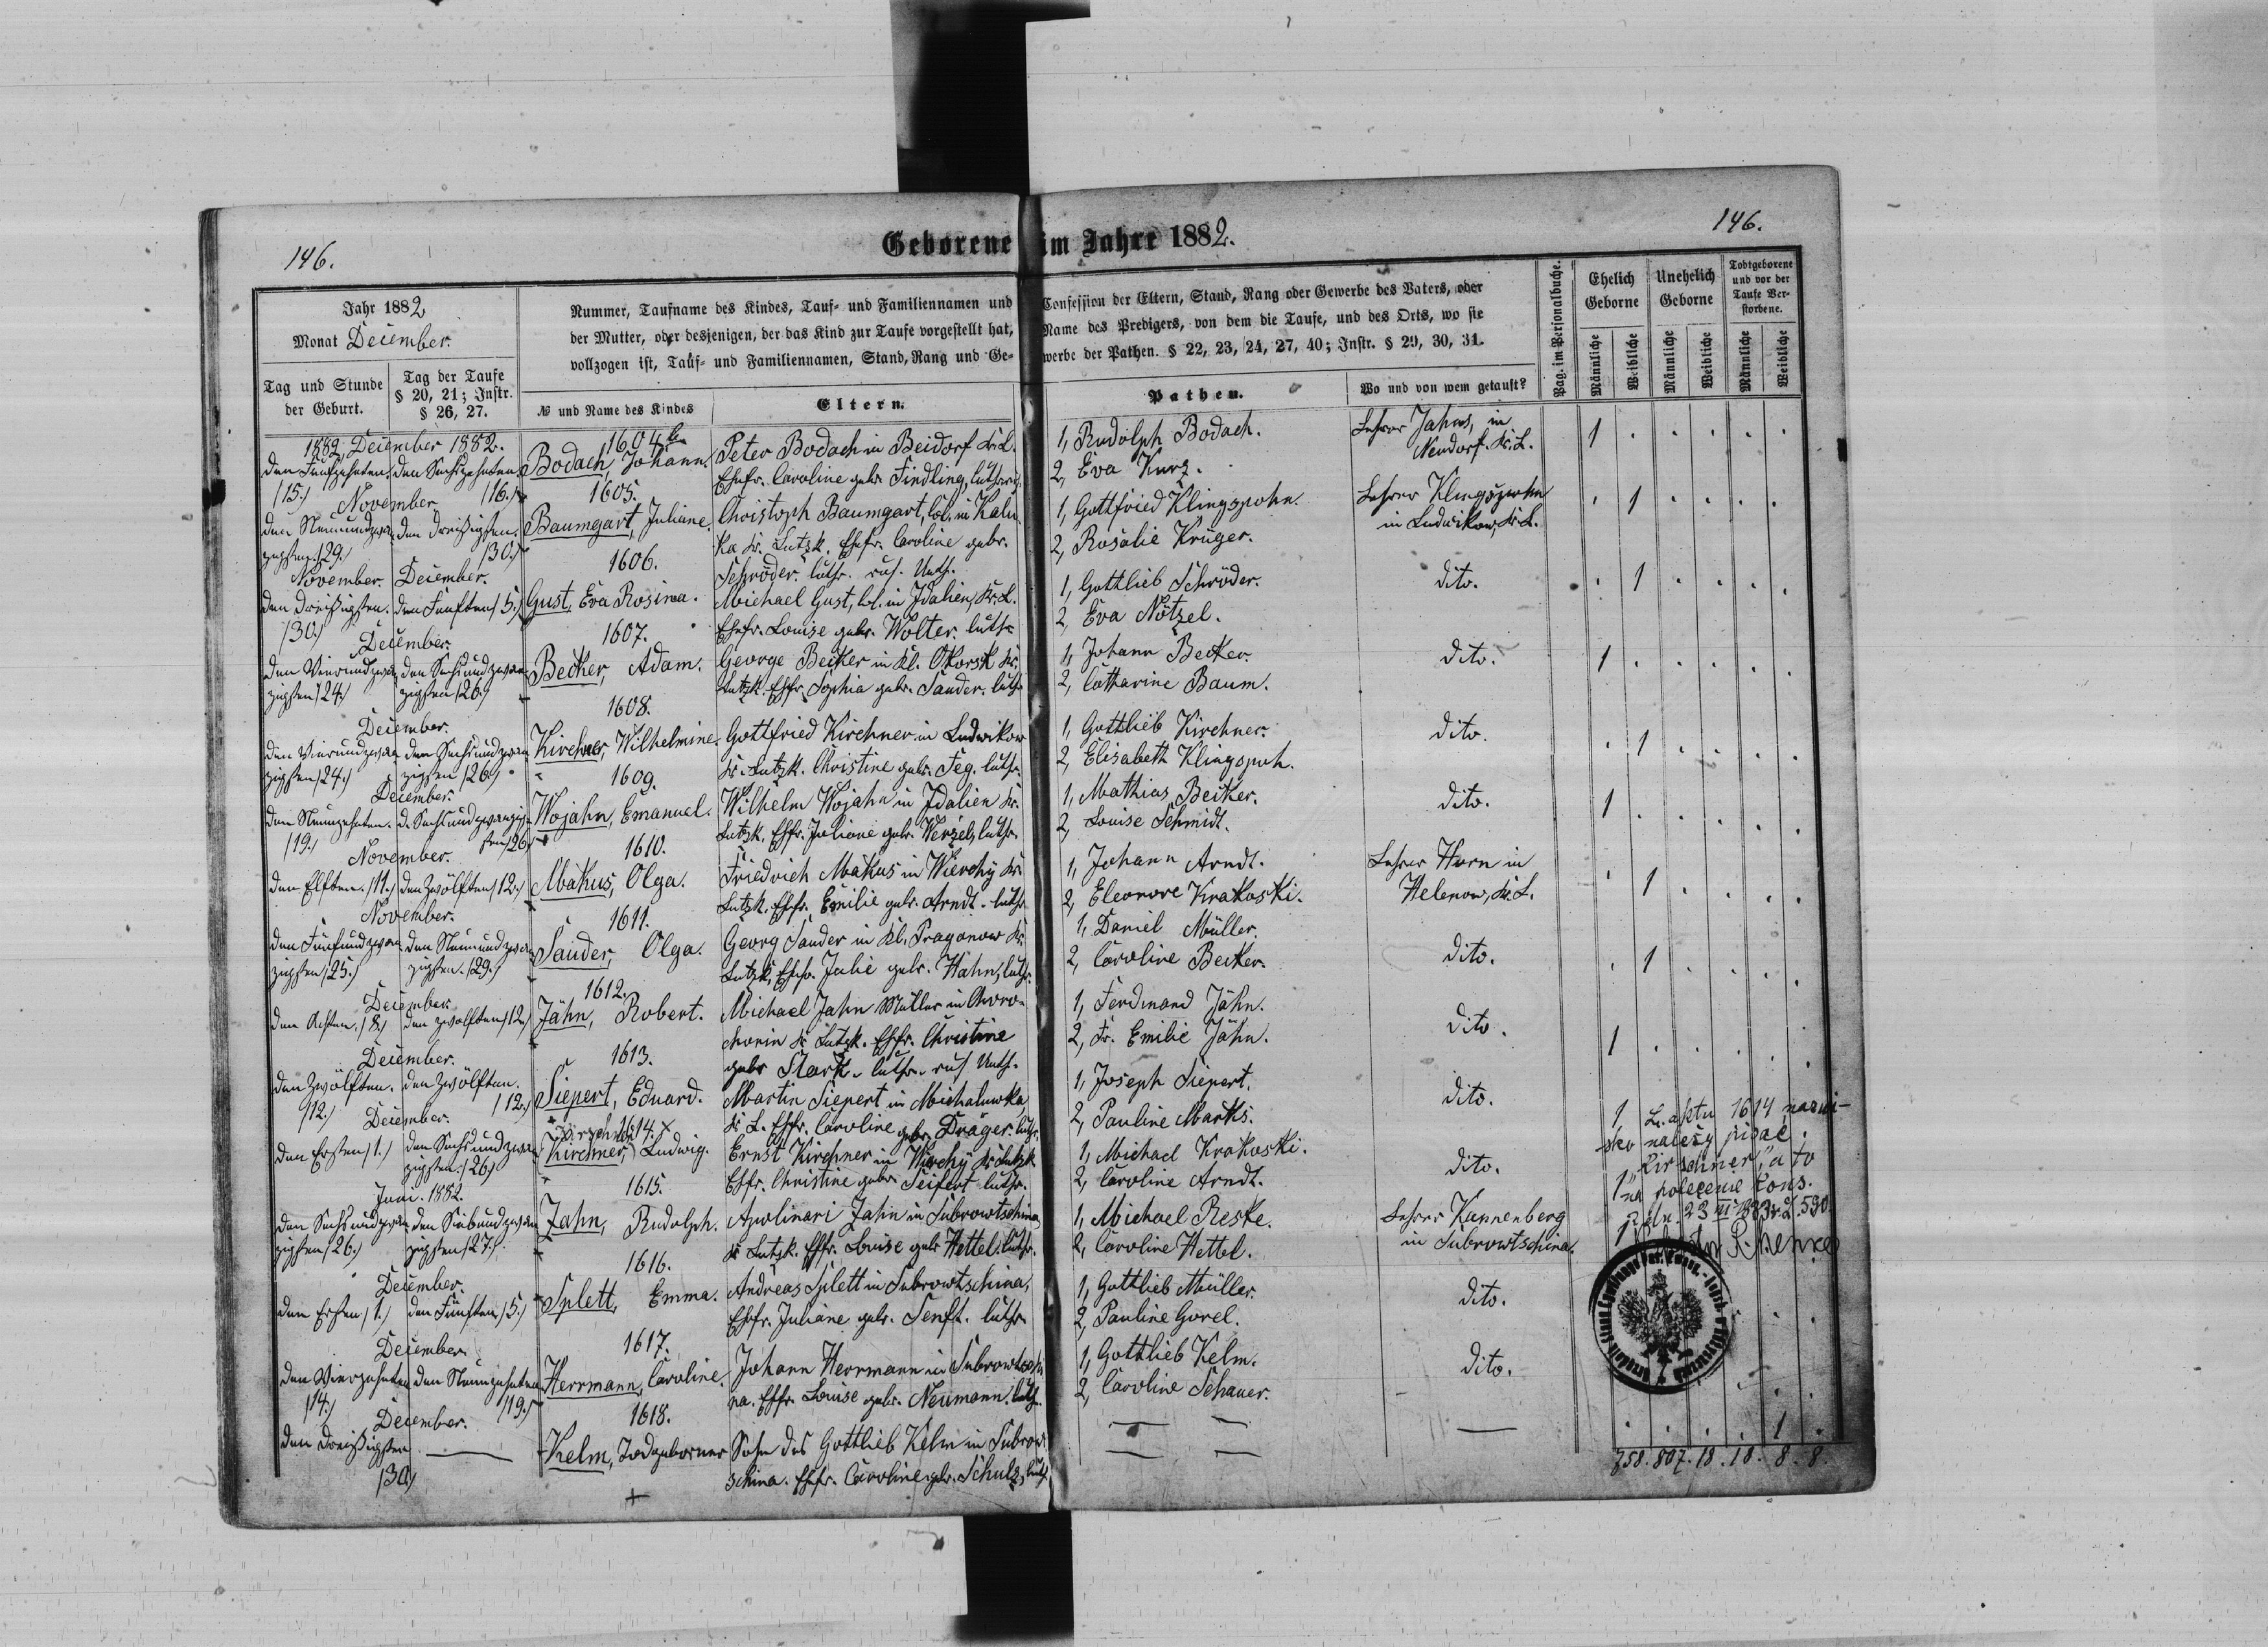 146.
Geborene im Jahre 1882.
146.
Jahr 1882
Monat December.
Tag und Stunde
der Geburt.
Tag der Taufe
§ 20, 21; Instr.
§ 26, 27.
Nummer, Taufname des Kindes, Tauf- und Familiennamen und
der Mutter, oder desjenigen, der das Kind zur Taufe vorgestellt hat,
vollzogen ist, Tauf- und Familiennamen, Stand, Rang und Ge-
№ und Name des Kindes
Eltern.
Confession der Eltern, Stand, Rang oder Gewerbe des Vaters, oder
Name des Predigers, von dem die Taufe, und des Orts, wo sie
werbe der Pathen. § 22, 23, 24, 27, 40; Instr. § 29, 30, 31.
Pathen.
Wo und von wem getauft?
Pag. im Personalbuche.
Ehelich
Geborne
Unehelich
Geborne
Todtgeborene
und vor der
Taufe Ver-
storbene.
Männliche
Weibliche
Männliche
Weibliche
Männliche
Weibliche
1882, December 1882.
den Fünfzehnten. den Sechszehnten.
/15./ /16./
1604b
Bodach, Johann.
Peter Bodach in Beidorf Kr. L.
Ehefr. Caroline geb. Findling, luther.
1, Rudolph Bodach.
2, Eva Kurz.
Lehrer Jahns, in
Neudorf. Kr. L.
1
November
den Neunundzwan den dreißigsten.
zigsten /29./ /30./
1605.
Baumgart, Juliane.
Christoph Baumgart, Col. in Kalu
ka Kr. Lutzk. Ehefr. Caroline geb.
Schröder. luthr. rus. Unth.
1, Gottfried Klingspohn.
2, Rosalie Krüger.
Lehrer Klingspohn
in Ludwikow, Kr. L.
1
November. December.
den dreißigsten. den Fünften /5./
/30./
1606.
Gust, Eva Rosina.
Michael Gust, Col. in Idalien, Kr. L.
Ehefr. Louise geb. Wolter. luth.
1, Gottlieb Schröder.
2, Eva Nötzel.
dito.
1
December.
den Vierundzwan den Sechsundzwan
zigsten /24./ zigsten /26./
1607.
Becker, Adam.
George Becker in Kl. Okorsk Kr.
Lutzk. Ehfr. Sophia geb. Sander. luth.
1, Johann Becker.
2, Catharine Baum.
dito.
1
December.
den Vierundzwan den Sechsundzwan
zigsten /24./ zigsten /26./
1608.
Kirchner, Wilhelmine.
Gottfried Kirchner in Ludwikow
Kr. Lutzk. Christine geb. Feg. luthr.
1, Gottlieb Kirchner.
2, Elisabeth Klingspoh.
dito.
1
December.
den Neunzehnten. d. Sechsundzwanzig
/19./ sten /26./
1609.
Wojahn, Emanuel.
Wilhelm Wojahn in Idalien Kr.
Lutzk. Ehfr. Juliane geb. Wenzel, luthr.
1, Mathias Becker.
2, Louise Schmidt.
dito.
1
November.
den Elften. /11./ den Zwölften /12./
1610.
Makus, Olga.
Friedrich Makus in Wierchy Kr.
Lutzk. Ehfr. Emilie geb. Arndt. luthr.
1, Johann Arndt.
2, Eleonore Krakoski.
Lehrer Horn in
Helenow, Kr. L.
1
November.
den Fünfundzwan den Neunundzwan
zigsten /25./ zigsten. /29./
1611.
Sander, Olga.
Georg Sander in Kl. Praganow Kr.
Lutzk, Ehefr. Julie geb. Hahn, luthr.
1, Daniel Müller.
2, Caroline Becker.
dito.
1
December.
den Achten. /8./ den zwölften /12./
1612.
Jähn, Robert.
Michael Jahn Müller in Choro-
chorin Kr. Lutzk. Ehfr. Christine
geb. Stark. luthr. rus. Unth.
1, Ferdinand Jähn.
2, Fr. Emilie Jähn.
dito.
1
December.
den Zwölften. den Zwölften.
/12./ /12./
1613.
Siepert, Eduard.
Martin Siepert in Michaluwka
Kr. L. Ehfr. Caroline geb. Dräger. luthr.
1, Joseph Siepert.
2, Pauline Marks.
dito.
1
December.
den Ersten /1./ den Sechsundzwan
zigsten /26./
1614. x
Kirschner
Kirchner, Ludwig.
Ernst Kirchner in Wierchy Kr. Lutzk
Ehfr. Christine geb. Seifert luthr.
1, Michael Krakoski.
2, Caroline Arndt.
dito.
1
Do aktu 1614 nazwi-
sko należy pisać
"Kirschner", a to
na polecenie Cons.
23 III 1883
Juni. 1882.
den Sechsundzwan den Siebundzwan
zigsten /26./ zigsten /27./
1615.
Jahn, Rudolph.
Apolinari Jahn in Subrowtschina
Kr. Lutzk. Ehfr. Louise geb. Hettel. luthr.
1, Michael Reske.
2, Caroline Hettel.
Lehrer Kannenberg
in Subrowtschina.
1
December.
den Ersten /1./ den Fünften /5./
1616.
Splett, Emma.
Andreas Splett in Subrowtschina,
Ehefr. Juliane geb. Senft. luthr.
1, Gottlieb Müller.
2, Pauline Gorel.
dito.
December.
den Vierzehnten den Neunzehnten
/14./ /19./
1617.
Herrmann, Caroline.
Johann Herrmann in Subrowtschi
na. Ehfr. Louise geb. Neumann. luth.
1, Gottlieb Kelm.
2, Caroline Schauer.
dito.
December.
den dreißigsten
/30./
1618.
Kelm, Todgeborner
+
Sohn des Gottlieb Kelm in Subrow
schina. Ehefr. Caroline geb. Schulz, luth.
1
758. 807. 18. 18. 8. 8.